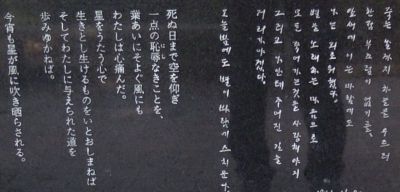 죽는 날까지 하늘을 우르러
한점 부끄럼이 없기를,
잎새에 이는 바람에도
나는 괴로워했다.
별을 노래하는 마음으로
모든 죽어가는것을 사랑해야지
그리고 나안테 주어진 길을
거러가야겠다.
오늘밤에도 별이 바람에 스치운다.
死ぬ日まで空を仰ぎ
一点の恥辱なきことを、
葉あいにそよぐ風にも
わたしは心痛んだ。
星をうたう心で
生きとし生けるものをいとおしまねば
そしてわたしに与えられた道を
歩みゆかねば。
今宵も星が風に吹き晒らされる。